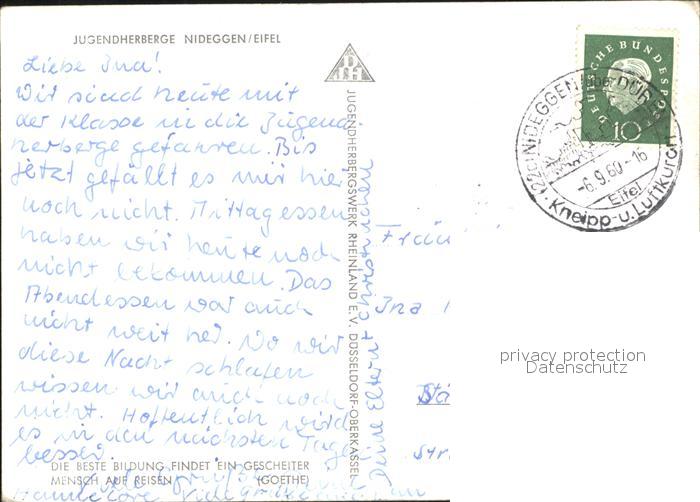 JUGENDHERBERGE NIDEGGEN/EIFEL
Liebe Ina!
Wir sind heute mit
der Klasse in die Jugend
herberge gefahren. Bis
jetzt gefällt es mir hier
noch nicht. Mittagessen
haben wir heute noch
nicht bekommen. Das
Abendessen war auch
nicht weit her. Wo wir
diese Nacht schlafen
wissen wir auch noch
nicht. Hoffentlich wird
es in den nächsten Tage
besser.
DIE BESTE BILDUNG FINDET EIN GESCHEITER
MENSCH AUF REISEN (GOETHE)
Hannelore Viele Grüße
Deine
DJH
JUGENDHERBERGSWERK RHEINLAND E.V. DÜSSELDORF-OBERKASSEL
DEUTSCHE BUNDESPOST
10
22c NIDEGGEN über DÜREN
-6.9.60-16
Eifel
Kneipp-u.Luftkurort
Fräu
Ina
privacy protection
Datenschutz